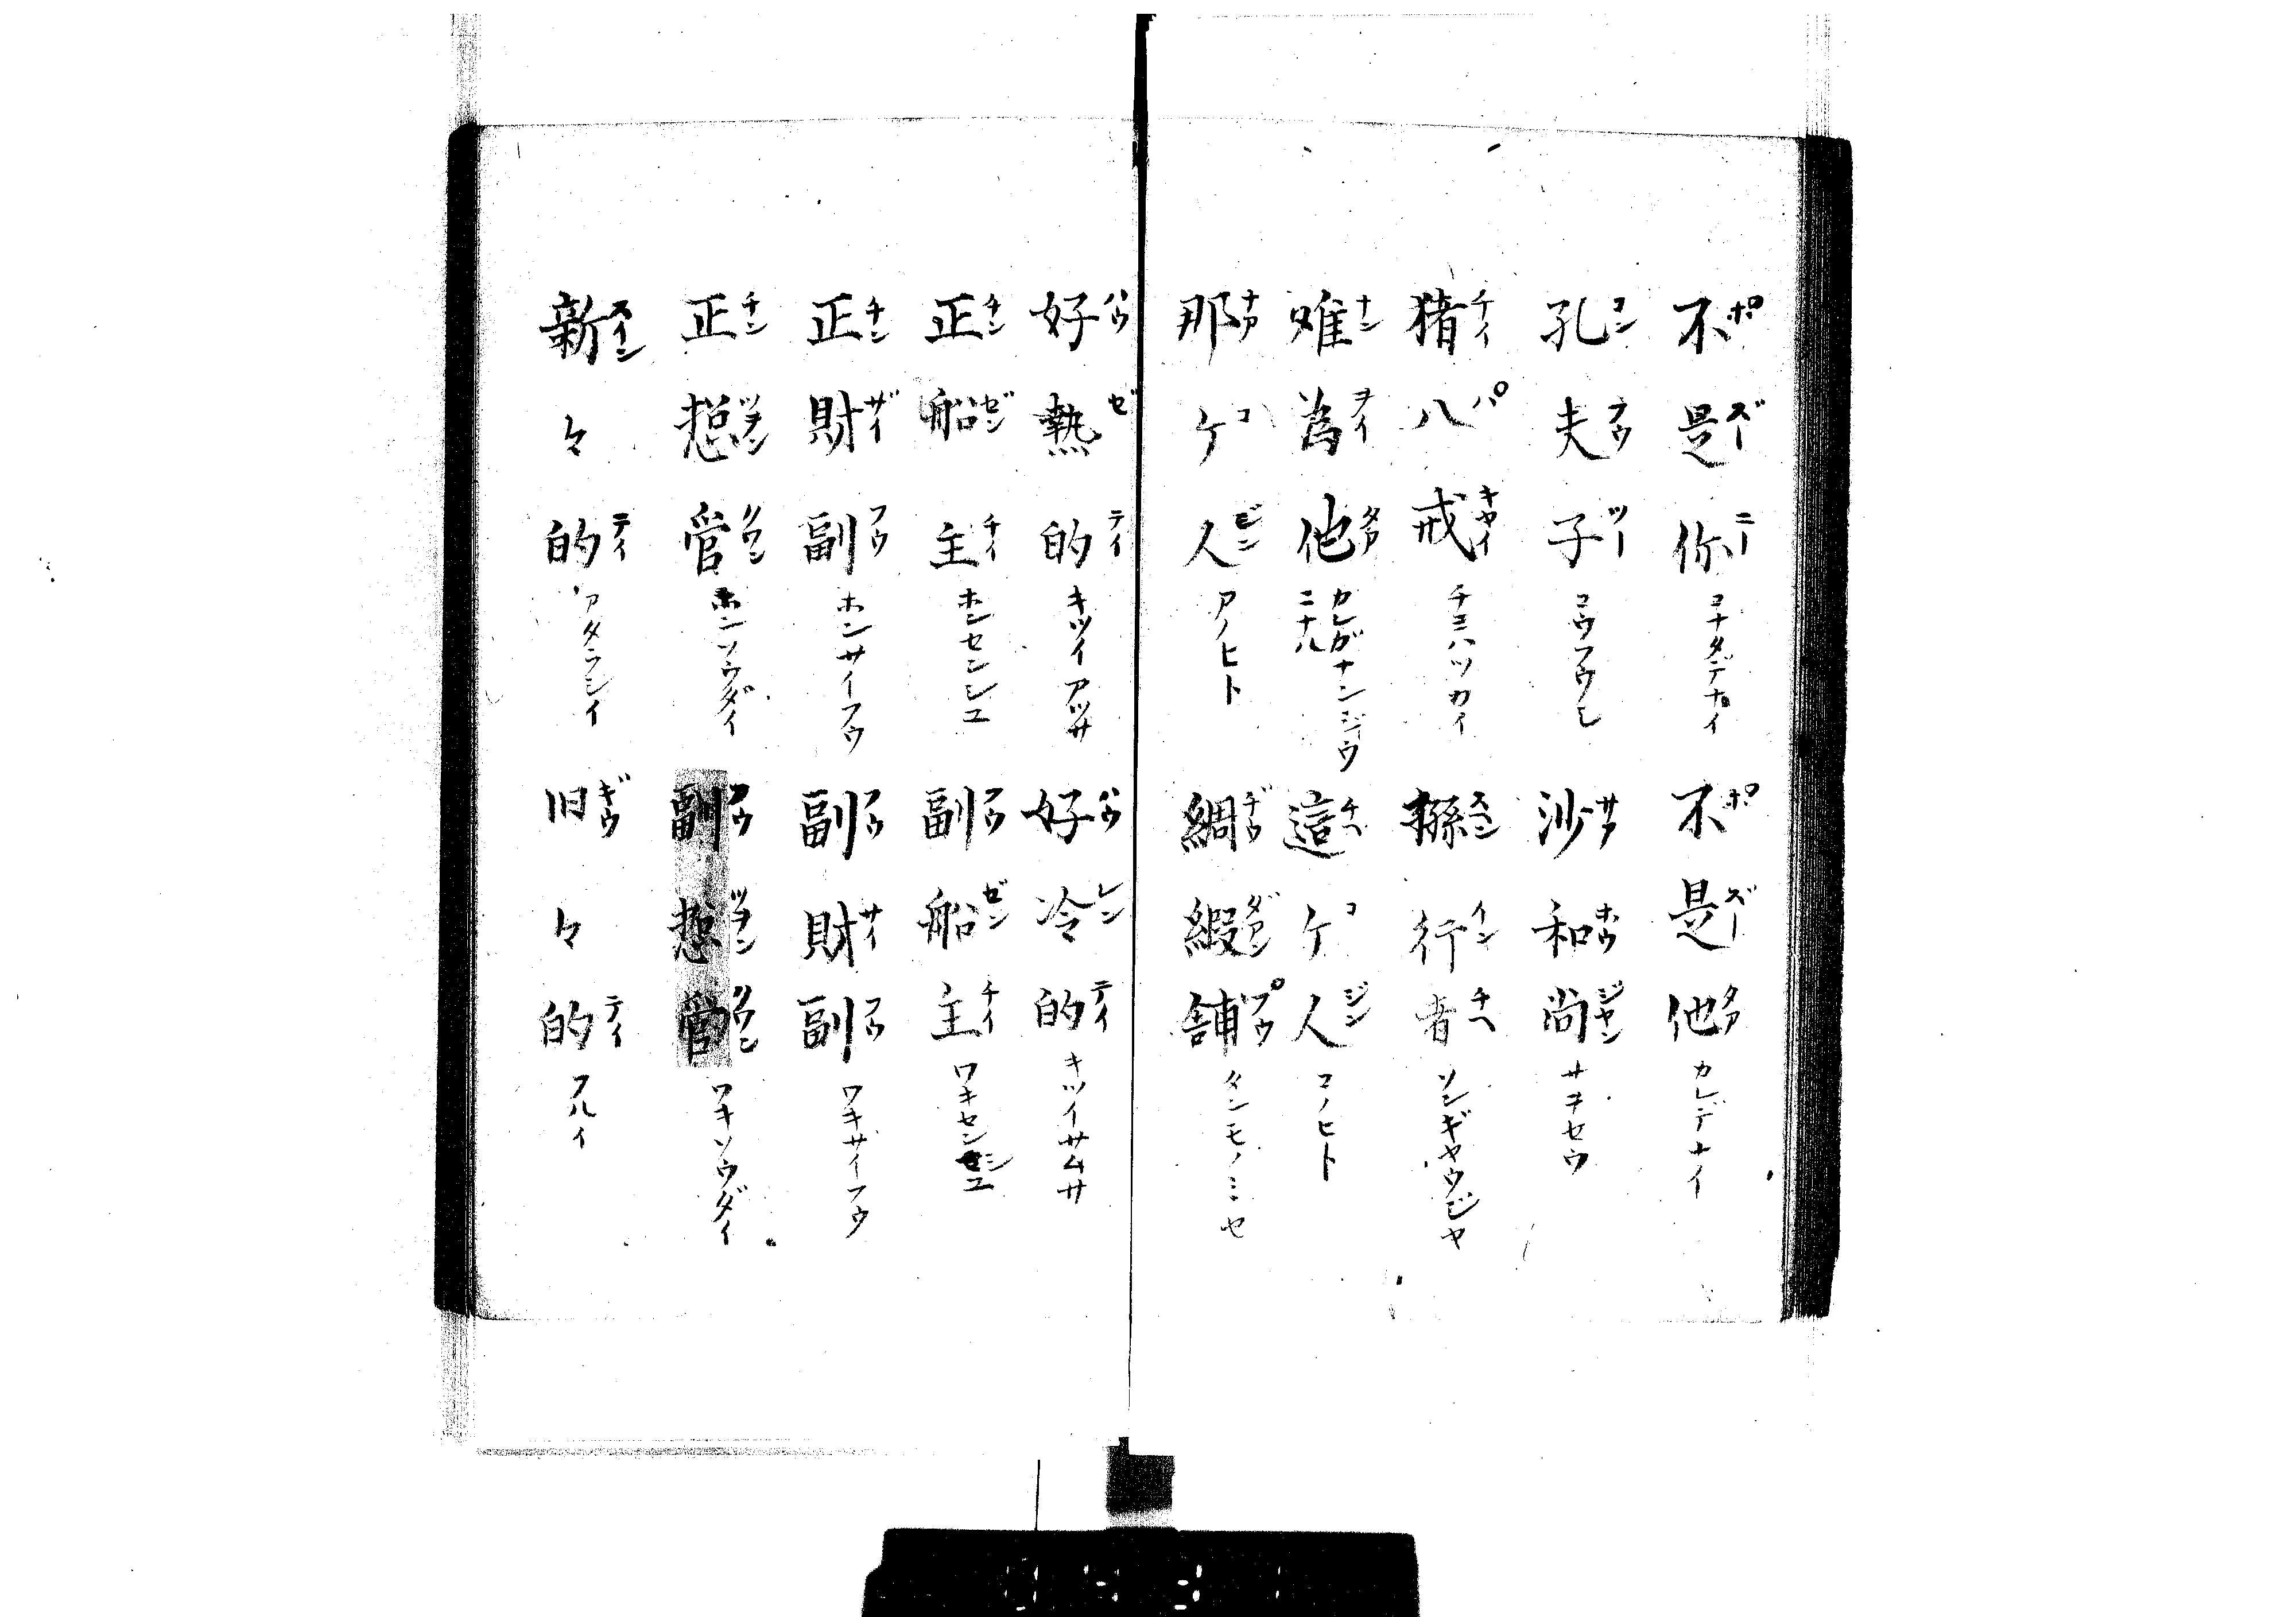 不是你 コナタデナイ 不是他 カレデナイ
孔夫子 コウフウシ 沙和尚 サヲセウ
猪八戒 チヨハツカイ 猻行者 ソンギヤウジヤ
难為他 カレガナンジウニナル 這ケ人 コノヒト
那ケ人 アノヒト 綢緞舗 タンモノミセ
好熱的 キツイアツサ 好冷的 キツイサムサ
正船主 ホンセンシユ 副船主 ワキセンシユ
正財副 ホンサイフウ 副財副 ワキサイフウ
正惣管 ホンソウダイ 副惣管 ワキソウダイ
新々的 アタラシイ 旧々的 フルイ